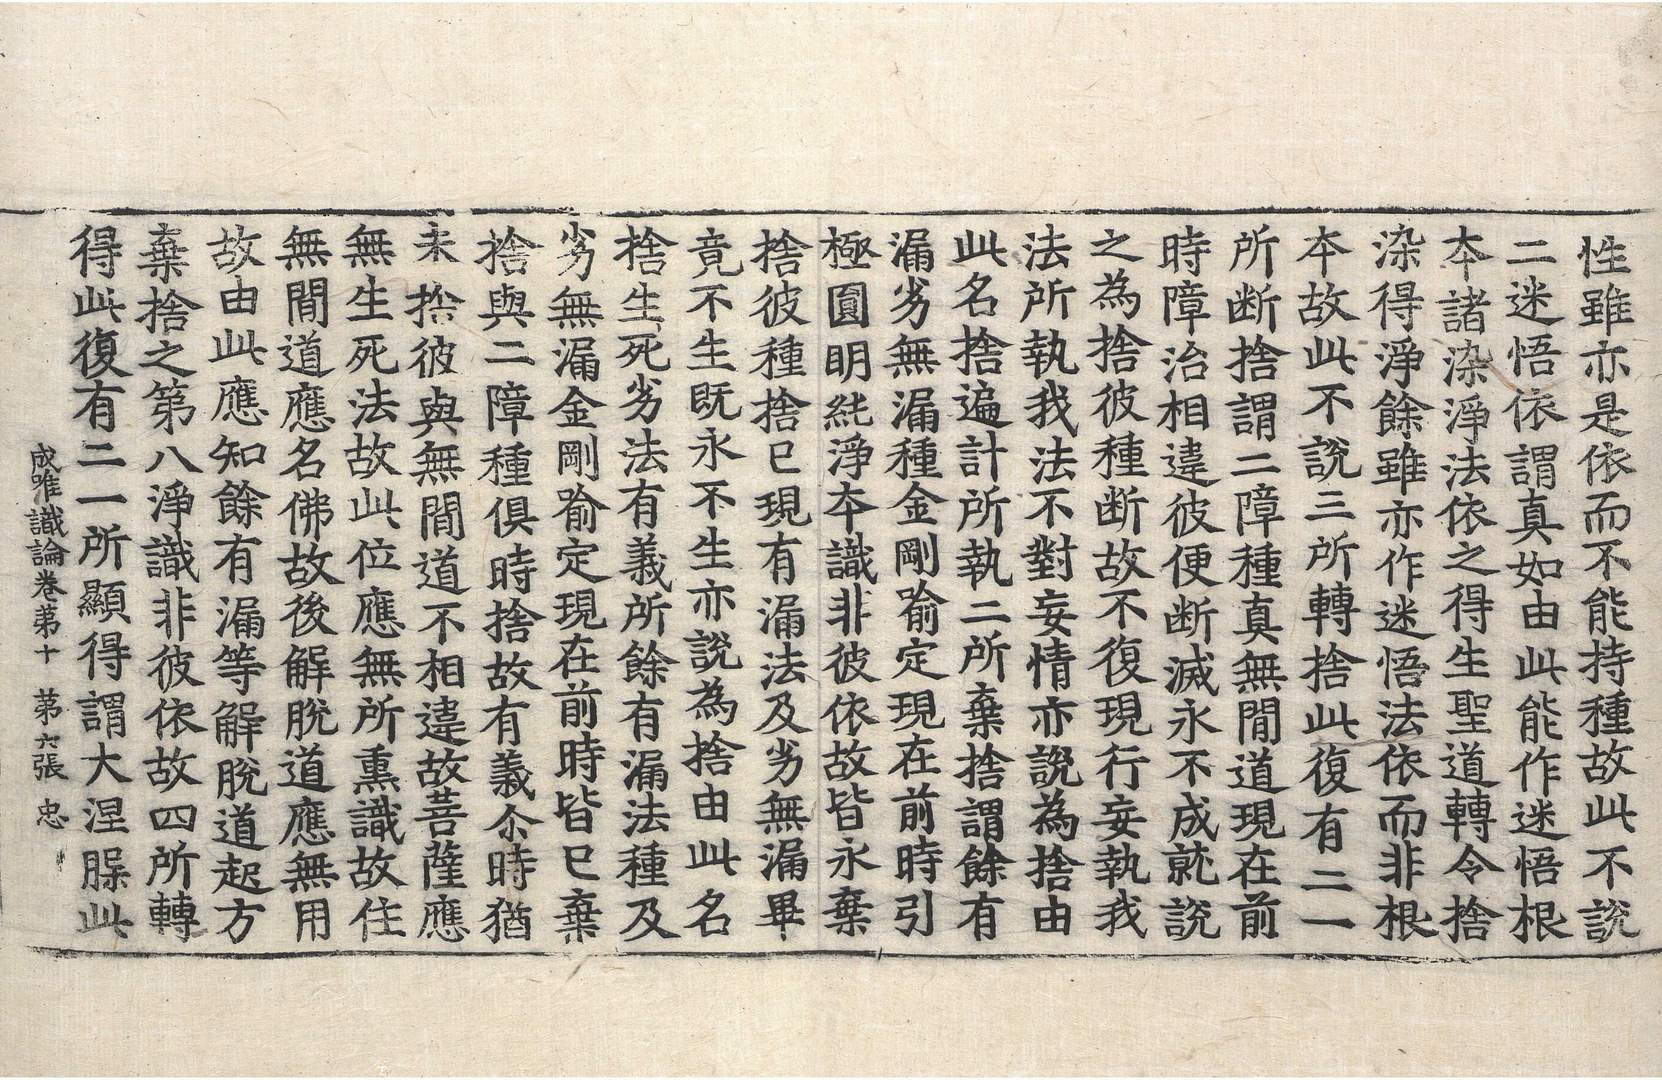 性雖亦是依而不能持種故此不說
二迷悟依謂真如由此能作迷悟根
本諸染淨法依之得生聖道轉令捨
染得淨餘雖亦作迷悟法依而非根
本故此不說三所轉捨此復有二一
所断捨謂二障種真無間道現在前
時障治相違彼便断滅永不成就說
之為捨彼種断故不復現行妄執我
法所執我法不對妄情亦說為捨由
此名捨遍計所執二所棄捨謂餘有
漏劣無漏種金剛喻定現在前時引
極圓明純淨本識非彼依故皆永棄
捨彼種捨已現有漏法及劣無漏畢
竟不生既永不生亦說為捨由此名
捨生死劣法有義所餘有漏法種及
劣無漏金剛喻定現在前時皆已棄
捨與二障種俱時捨故有義尒時猶
未捨彼與無間道不相違故菩薩應
無生死法故此位應無所熏識故住
無間道應名佛故後解脫道應無用
故由此應知餘有漏等解脫道起方
棄捨之第八淨識非彼依故四所轉
得此復有二一所顯得謂大涅槃此
成唯識論卷第十 第六張 忠